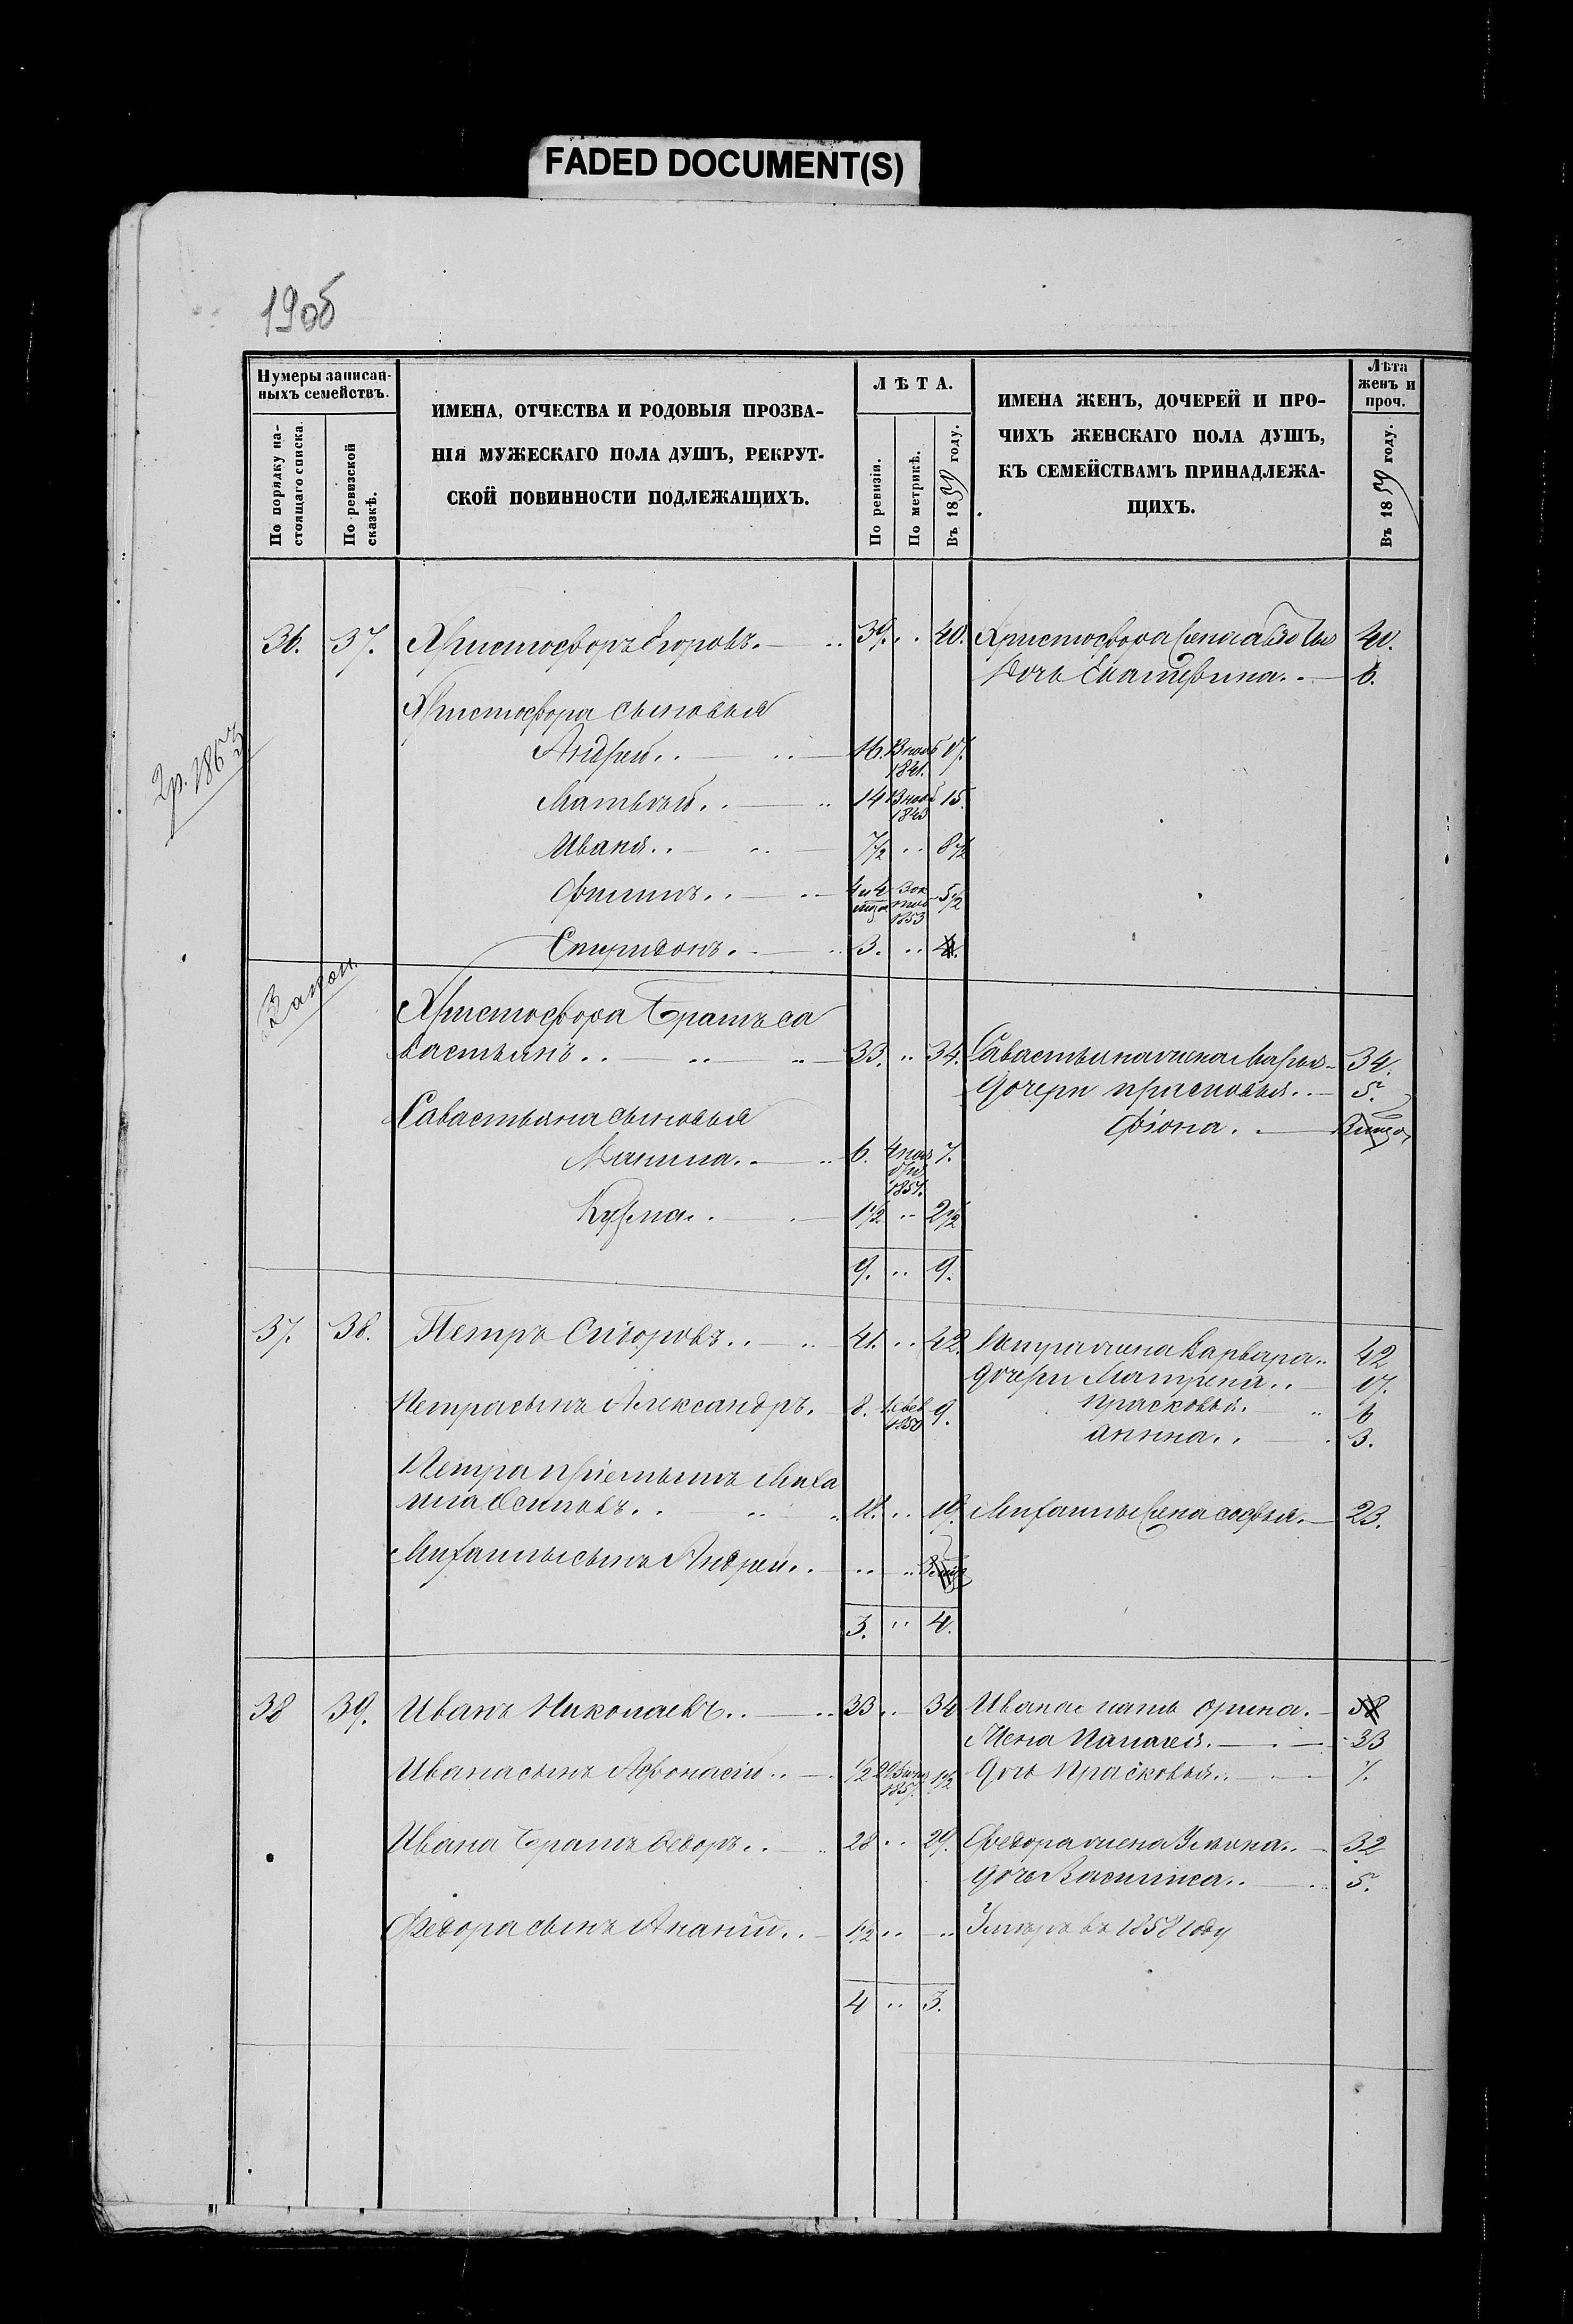 FADED DOCUMENT(S)
19об
Нумеры записан-
ныхъ семействъ.
По порядку на-
стоящаго списка.
По ревизской
сказкѣ.
ИМЕНА, ОТЧЕСТВА И РОДОВЫЯ ПРОЗВА-
НІЯ МУЖЕСКАГО ПОЛА ДУШЪ, РЕКРУТ-
СКОЙ ПОВИННОСТИ ПОДЛЕЖАЩИХЪ.
ЛѢТА.
По ревизіи.
По метрикѣ.
Въ 1859 году.
ИМЕНА ЖЕНЪ, ДОЧЕРЕЙ И ПРО-
ЧИХЪ ЖЕНСКАГО ПОЛА ДУШЪ,
КЪ СЕМЕЙСТВАМЪ ПРИНАДЛЕЖА-
ЩИХЪ.
Лѣта
женъ и
проч.
Въ 1859 году.
36. 37. Христофоръ Егоровъ. 39. 40. Христофора жена 40.
Дочь Екатерина. 6.
Христофора сыновья
Андрей 16. 17.
1841.
Матвѣй 14 15.
1843
Иванъ 7½ 8½
Филипъ 5½
1853
Спиридонъ. 3. 4.
2р. 1863
Христофора братъ Са
вастьянъ 33. 34. Савастьяна жена Марья 34.
дочери Прасковья 5.
Савастьяна сыновья
Фіона.
Никита 6. 7.
Кузма 1½ 2½
9. 9.
37. 38. Петръ Сидоровъ 41. 42. Петра жена Варвара 42
дочери Матрена 17.
Петра сынъ Александръ. 8. 9. Прасковья. 6
1850
Анна 3.
Петра пріемышъ Миха
ила Осиповъ 18. 19. Михаилы жена Софья. 23.
Михаилы сынъ Андрей
3. 4.
38 39. Иванъ Николаевъ 33 34 Ивана мать Орина. 58
Жена Палагея. 33
Ивана сынъ Афонасій ½ 1½ дочь Прасковья 7.
1857.
Ивана братъ Федоръ 28 29. Федора жена Ульяна 32
дочь Василиса 5.
Федора сынъ Ананій 1½ Умеръ въ 1858 году
4 3.